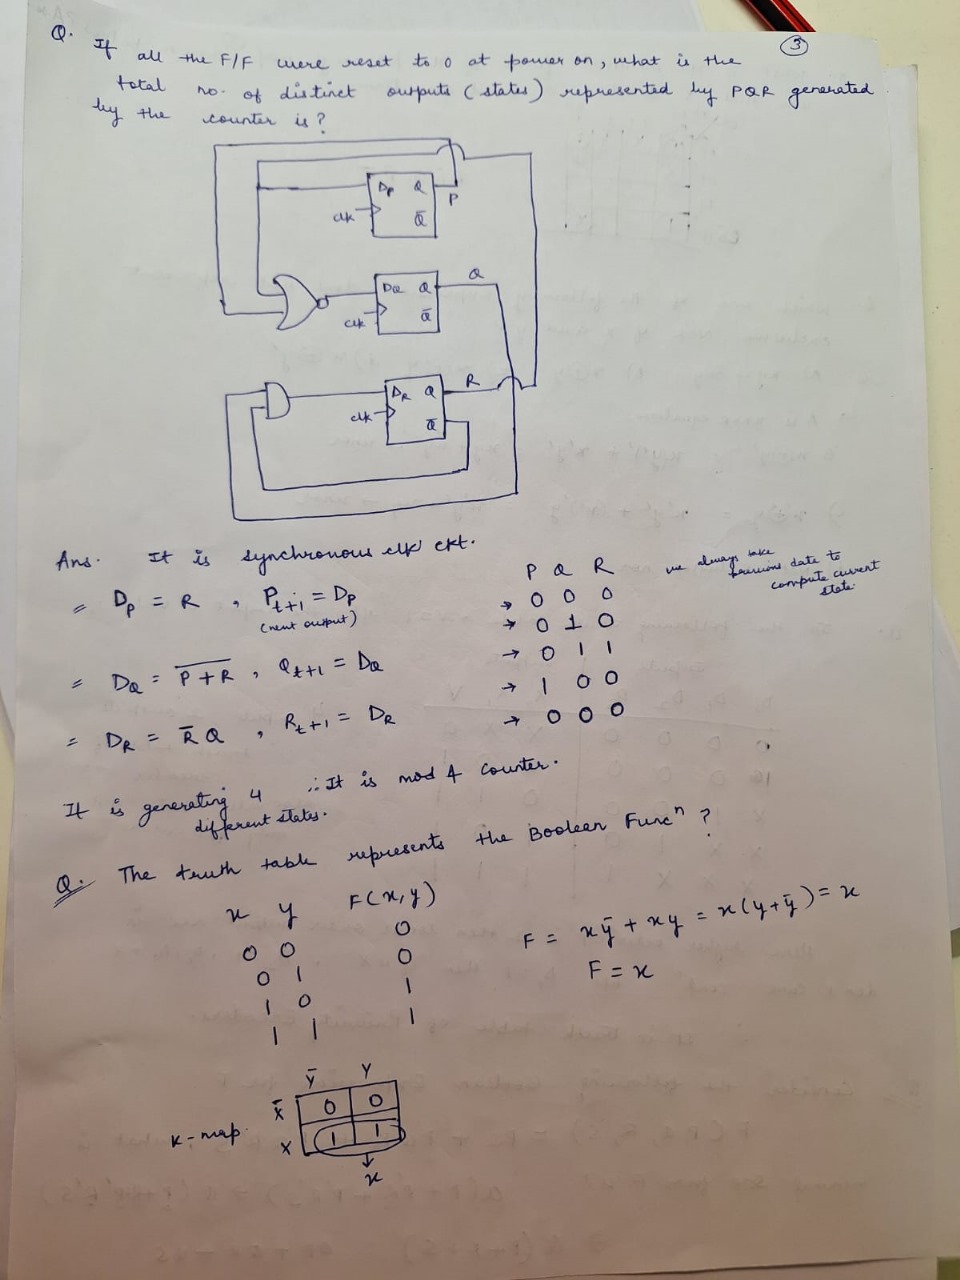 3
Q. If all the F/F were reset to 0 at power on, what is the
total no. of distinct outputs (states) represented by PQR generated
by the counter is?
Dp Q P
clk Q̄
DQ Q Q
clk Q̄
DR Q R
clk Q̄
Ans. It is synchronous clk ckt.
= Dp = R , Pt+1 = Dp
(next output)
= DQ = \overline{P+R} , Qt+1 = DQ
= DR = R̄ Q , Rt+1 = DR
P Q R
→ 0 0 0
→ 0 1 0
→ 0 1 1
→ 1 0 0
→ 0 0 0
we always take
date to
compute current
state
It is generating 4 ∴ It is mod 4 counter.
different states.
Q. The truth table represents the Boolean Funcⁿ ?
x y F(x,y)
0 0 0
0 1 0
1 0 1
1 1 1
F = xȳ + xy = x(y+ȳ) = x
F = x
ȳ Y
x̄ 0 0
K-map. X 1 1
x